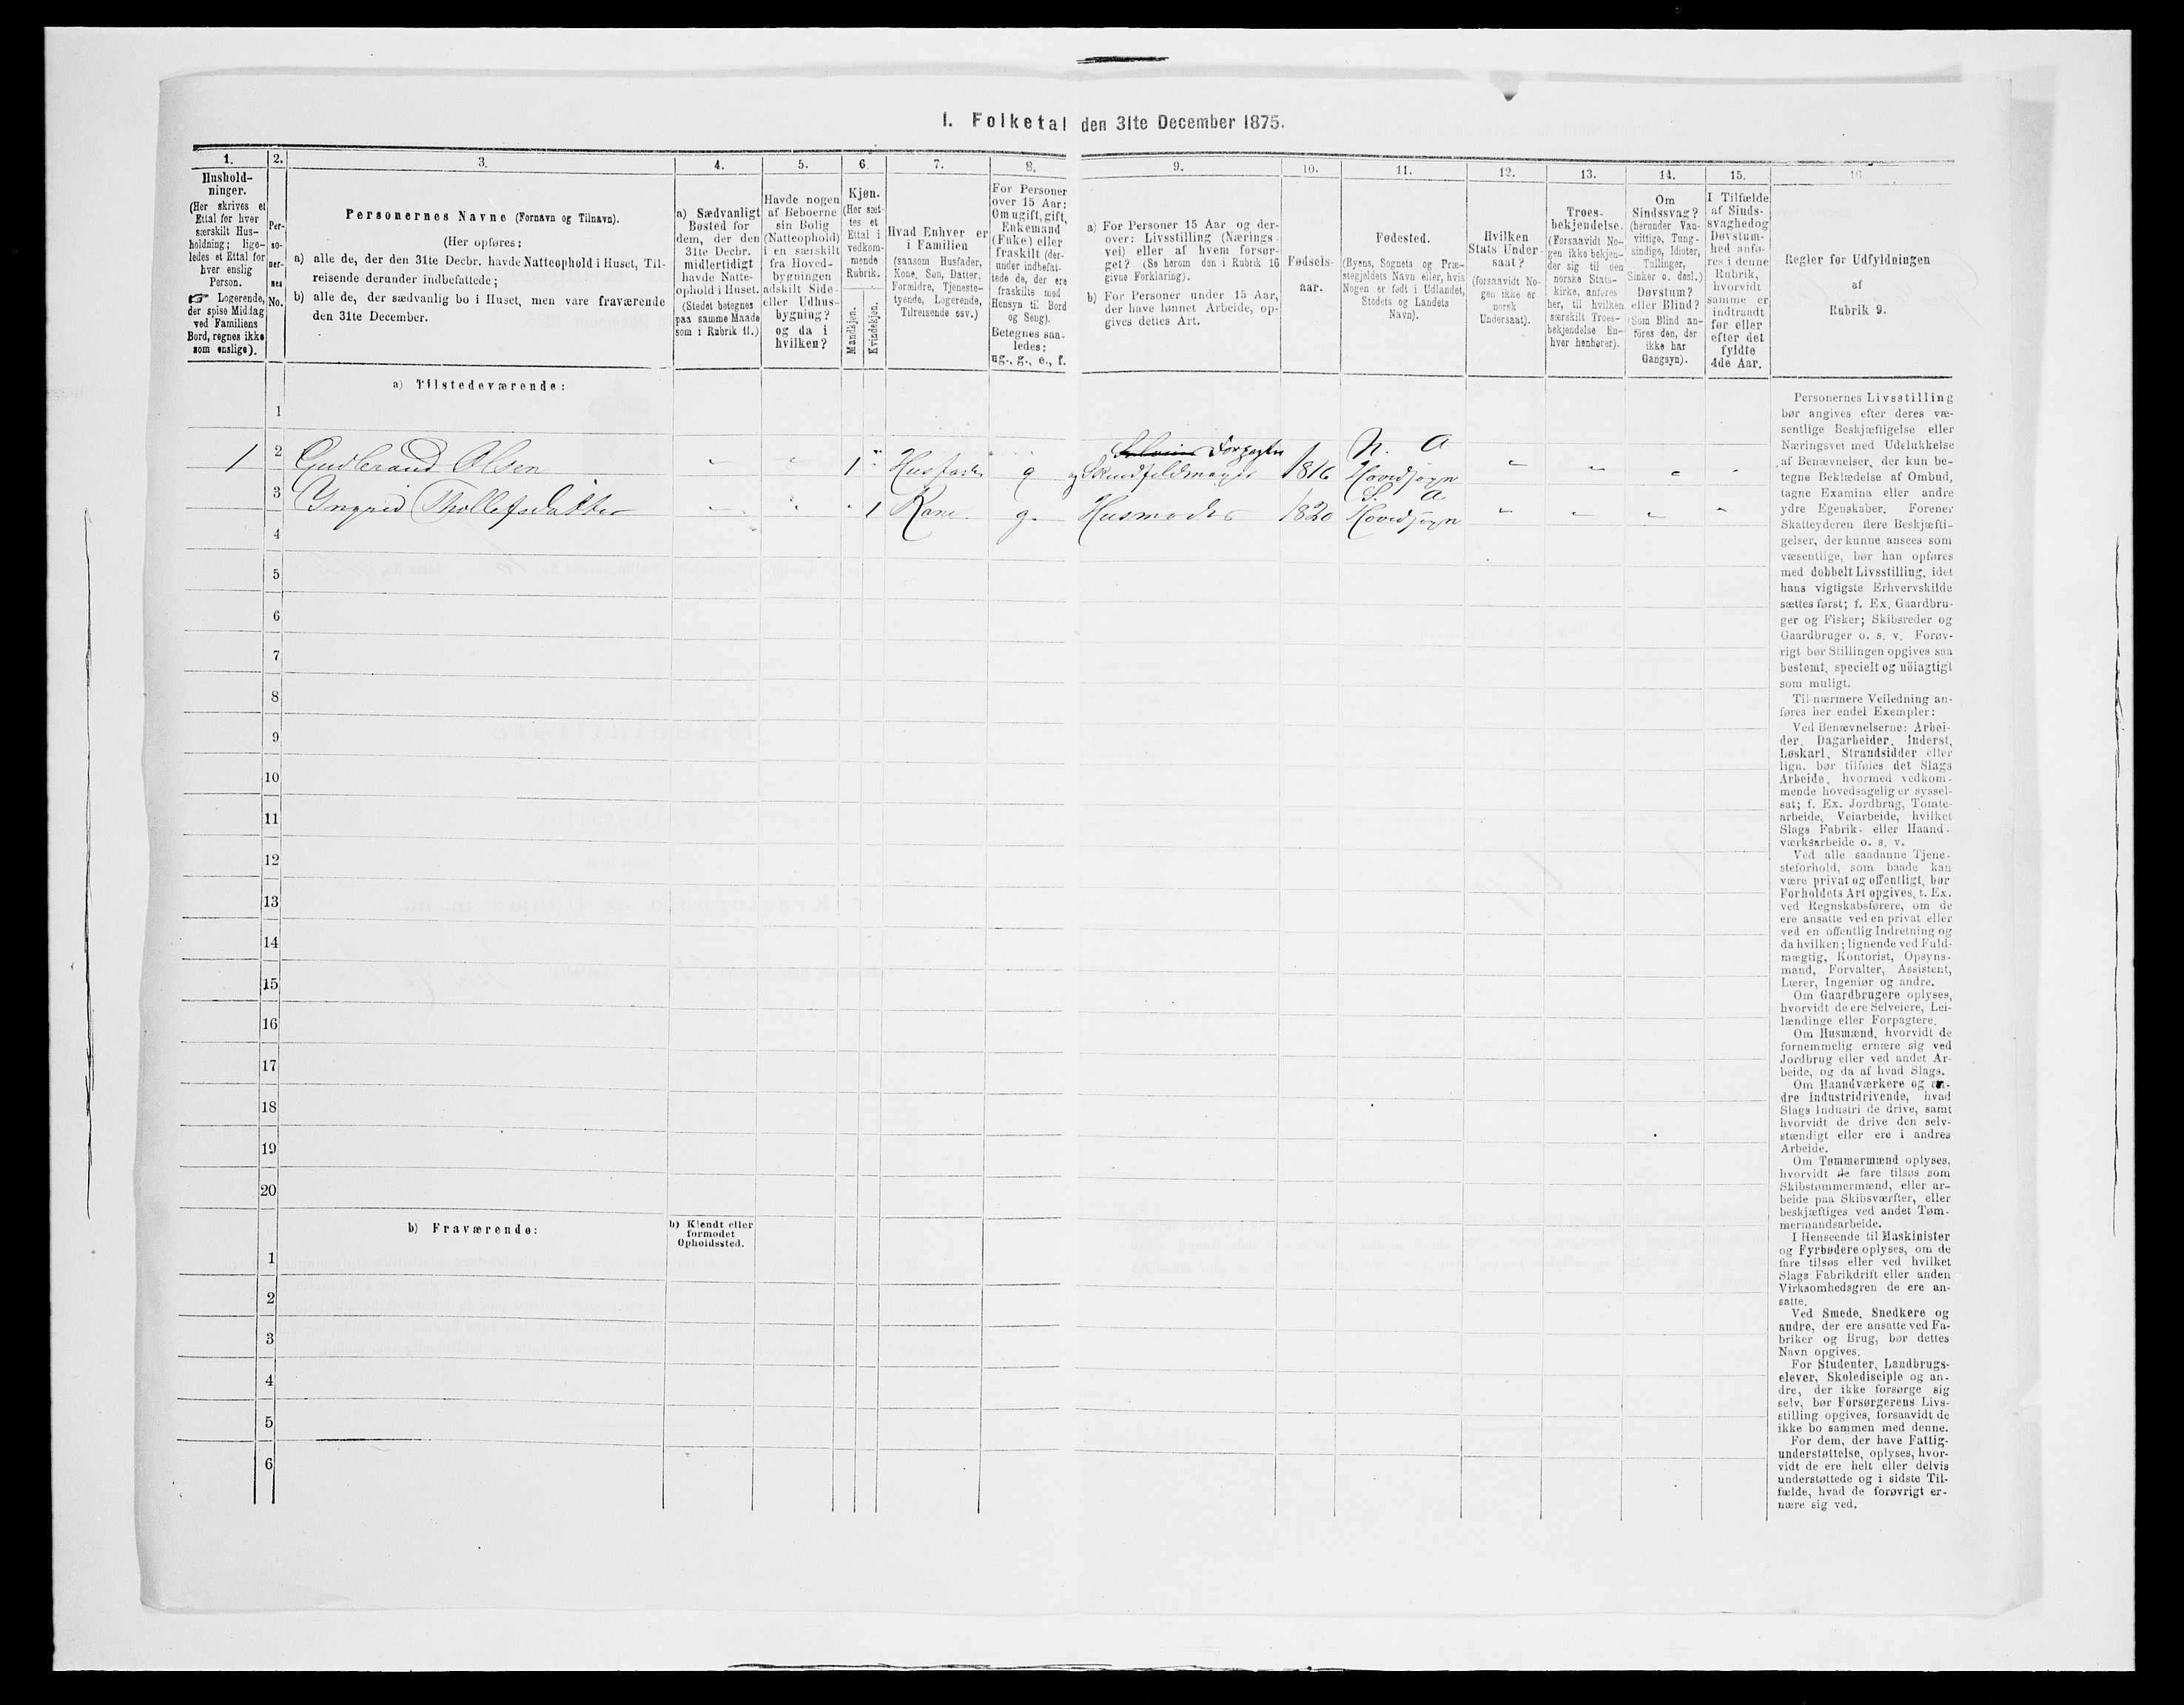 I. Folketal den 31te December 1875.
1. 2. 3. 4. 5. 6. 7. 8. 9. 10. 11. 12. 13. 14. 15. 16
Hushold-
ninger.
(Her skrives et
Ettal for hver
særskilt Hus-
holdning; lige-
ledes et Ettal for
hver enslig
Person.
☞ Logerende,
der spise Middag
ved Familiens
Bord, regnes ikke
som enslige).
Per-
so-
ner-
nes
No.
Personernes Navne (Fornavn og Tilnavn).
(Her opføres:
a) alle de, der den 31te Decbr. havde Natteophold i Huset, Til-
reisende derunder indbefattede;
b) alle de, der sædvanlig bo i Huset, men vare fraværende
den 31te December.
a) Sædvanligt
Bosted for
dem, der den
31te Decbr.
midlertidigt
havde Natte-
ophold i Huset.
(Stedet betegnes
paa samme Maade
som i Rubrik 11.)
Havde nogen
af Beboerne
sin Bolig
(Natteophold)
i en særskilt
fra Hoved-
bygningen
adskilt Side-
eller Udhus-
bygning?
og da i
hvilken?
Kjøn.
(Her sæt-
tes et
Ettal i
vedkom-
mende
Rubrik.
Mandkjøn.
Kvindekjøn.
Hvad Enhver er
i Familien
(saasom Husfader,
Kone, Søn, Datter,
Forældre, Tjeneste-
tyende, Logerende,
Tilreisende osv.)
For Personer
over 15 Aar:
Om ugift, gift,
Enkemand
(Enke) eller
fraskilt (der-
under indbefat-
tede de, der ere
fraskilte med
Hensyn til Bord
og Seng).
Betegnes saa-
ledes:
ug., g., e., f.
a) For Personer 15 Aar og der-
over: Livsstilling (Nærings-
vei) eller af hvem forsør-
get? (Se herom den i Rubrik 16
givne Forklaring).
b) For Personer under 15 Aar,
der have lønnet Arbeide, op-
gives dettes Art.
Fødsels-
aar.
Fødested.
(Byens, Sognets og Præ-
stegjeldets Navn eller, hvis
Nogen er født i Udlandet,
Stedets og Landets
Navn).
Hvilken
Stats Under-
saat?
(forsaavidt No-
gen ikke er
norsk
Undersaat).
Troes-
bekjendelse.
(Forsaavidt No-
gen ikke bekjen-
der sig til den
norske Stats-
kirke, anføres
her, til hvilken
særskilt Troes-
bekjendelse En-
hver henhører).
Om
Sindssvag?
(herunder Van-
vittige, Tung-
sindige, Idioter,
Tullinger,
Sinker o. desl.)
Døvstum?
eller Blind?
(Som Blind an-
føres den, der
ikke har
Gangsyn).
I Tilfælde
af Sinds-
svaghed og
Døvstum-
hed anfø-
res i denne
Rubrik,
hvorvidt
samme er
indtraadt
før eller
efter det
fyldte
4de Aar.
Regler for Udfyldningen
af
Rubrik 9.
a) Tilstedeværende:
1
Forpagter N. A
1 2 Gudbrand Olsen 1 Husfader g og Skindfeldmager 1816 Hovedsogn
S. A
3 Yngrid Thollefsdatter 1 Kone g. Husmoder 1820 Hovedsogn
4
5
6
7
8
9
10
11
12
13
14
15
16
17
18
19
20
b) Fraværende:
b) Kjendt eller
formodet
Opholdssted.
1
2
3
4
5
6
Personernes Livsstilling
bør angives efter deres væ-
sentlige Beskjæftigelse eller
Næringsvei med Udelukkelse
af Benævnelser, der kun be-
tegne Beklædelse af Ombud,
tagne Examina eller andre
ydre Egenskaber. Forener
Skatteyderen flere Beskjæfti-
gelser, der kunne ansees som
væsentlige, bør han opføres
med dobbelt Livsstilling, idet
hans vigtigste Erhvervskilde
sættes først; f. Ex. Gaardbru-
ger og Fisker; Skibsreder og
Gaardbruger o. s. v. Forøv-
rigt bør Stillingen opgives saa
bestemt, specielt og nöiagtigt
som muligt.
Til nærmere Veiledning an-
føres her endel Exempler:
Ved Benævnelserne: Arbei-
der, Dagarbeider, Inderst,
Løskarl, Strandsidder eller
lign. bør tilføies det Slags
Arbeide, hvormed vedkom-
mende hovedsagelig er syssel-
sat; f. Ex. Jordbrug, Tomte-
arbeide, Veiarbeide, hvilket
Slags Fabrik- eller Haand-
værksarbeide o. s. v.
Ved alle saadanne Tjene-
steforhold, som baade kan
være privat og offentligt, bør
Forholdets Art opgives, t. Ex.
ved Regnskabsførere, om de
ere ansatte ved en privat eller
ved en offentlig Indretning og
da hvilken; lignende ved Fuld-
mægtig, Kontorist, Opsyns-
mand, Forvalter, Assistent,
Lærer, Ingeniør og andre.
Om Gaardbrugere oplyses,
hvorvidt de ere Selveiere, Lei-
lændinge eller Forpagtere.
Om Husmænd, hvorvidt de
fornemmelig ernære sig ved
Jordbrug eller ved andet Ar-
beide, og da af hvad Slags.
Om Haandværkere og an-
dre industridrivende, hvad
Slags Industri de drive, samt
hvorvidt de drive den selv-
stændigt eller ere i andres
Arbeide.
Om Tømmermænd oplyses,
hvorvidt de fare tilsøs som
Skibstømmermænd, eller ar-
beide paa Skibsværfter, eller
beskjæftiges ved andet Tøm-
mermandsarbeide.
I Henseende til Maskinister
og Fyrbødere oplyses, om de
fare tilsøs eller ved hvilket
Slags Fabrikdrift eller anden
Virksomhedsgren de ere an-
satte.
Ved Smede, Snedkere og
andre, der ere ansatte ved Fa-
briker og Brug, bør dettes
Navn opgives.
For Studenter, Landbrugs-
elever, Skoledisciple og an-
dre, der ikke forsørge sig
selv, bør Forsørgerens Livs-
stilling opgives, forsaavidt de
ikke bo sammen med denne.
For dem, der have Fattig-
understøttelse, oplyses, hvor-
vidt de ere helt eller delvis
understøttede og i sidste Til-
fælde, hvad de forøvrigt er-
nære sig ved.